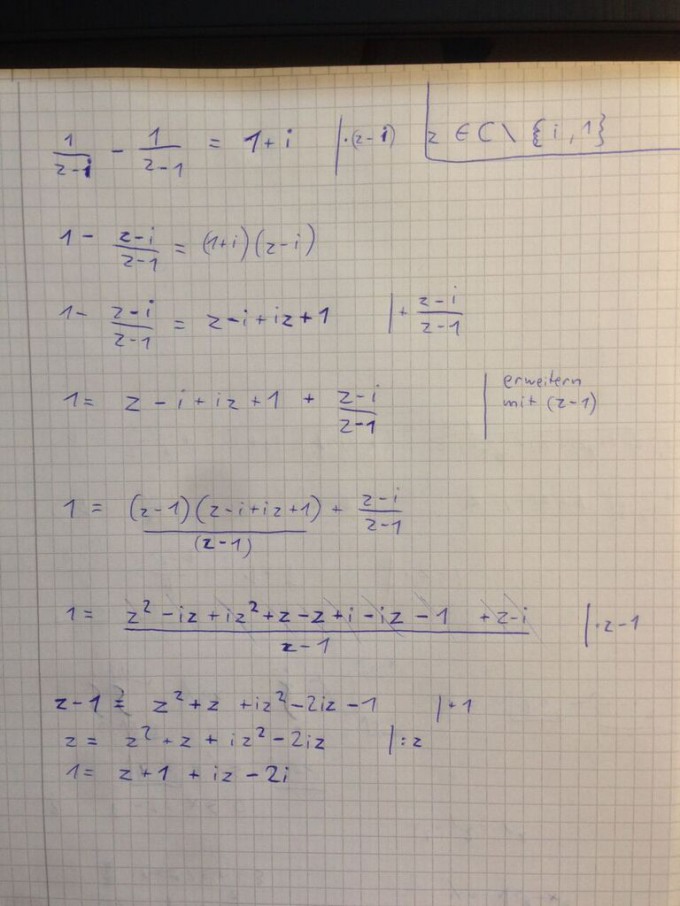 1/(z-i) - 1/(z-1) = 1+i |·(z-i) z ∈ C \ {i, 1}
1 - (z-i)/(z-1) = (1+i)(z-i)
1 - (z-i)/(z-1) = z-i+iz+1 |+ (z-i)/(z-1)
1= z - i + iz + 1 + (z-i)/(z-1) | erweitern mit (z-1)
1 = (z-1)(z-i+iz+1)/(z-1) + (z-i)/(z-1)
1= (z² - iz + iz² + z - z + i - iz - 1 + z - i)/(z-1) |·z-1
z-1 = z² + z + iz² - 2iz - 1 |+1
z = z² + z + iz² - 2iz |:z
1= z+1 + iz - 2i